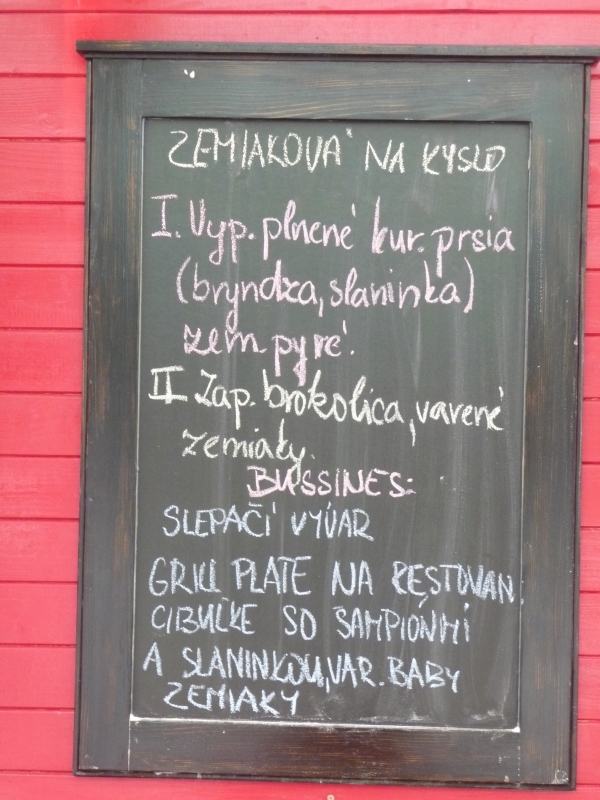 ZEMIAKOVÁ NA KYSLO
I. Vyp. plnené kur. prsia
(bryndza, slaninka)
zem. pyré.
II Zap. brokolica, varené
zemiaky.
BUSSINES:
SLEPAČÍ VÝVAR
GRILL PLATE NA RESTOVAN.
CIBUĽKE SO ŠAMPIÓNMI
A SLANINKOU, VAR. BABY
ZEMIAKY